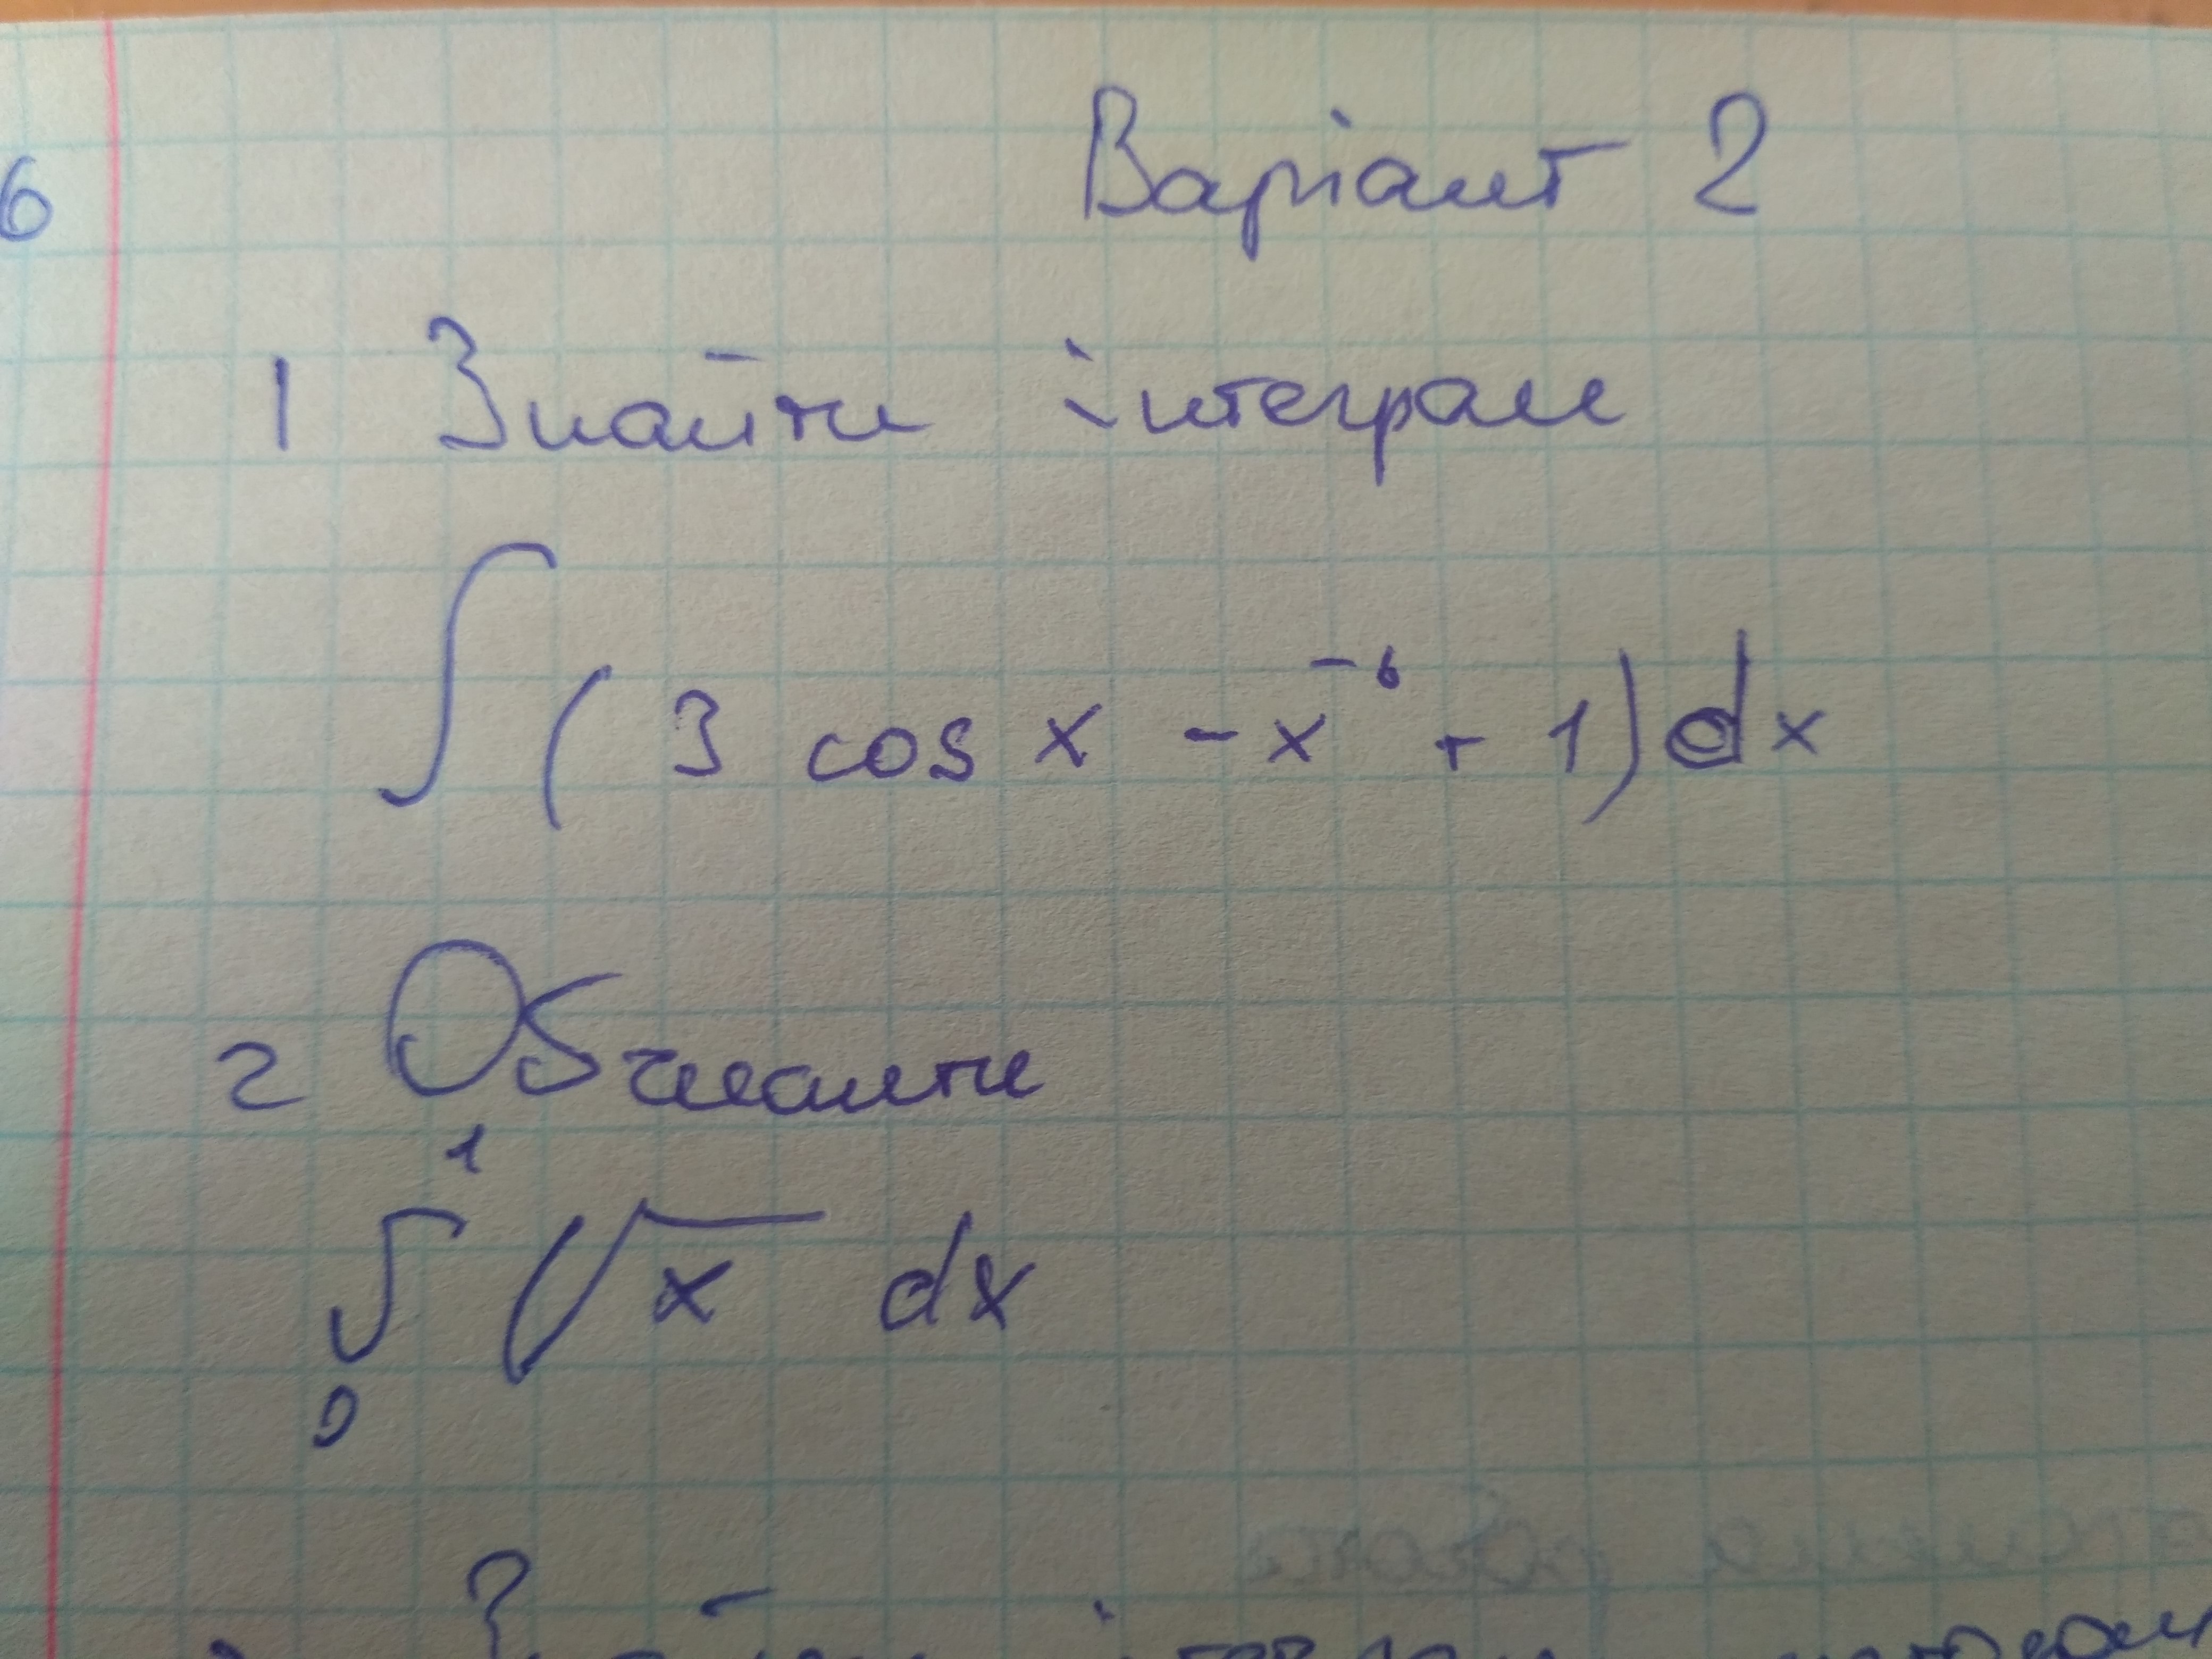 6
Варіант 2
1 Знайти інтеграл
∫(3 cos x - x⁻⁶ + 1)dx
2 Обчислити
1
∫ √x dx
0